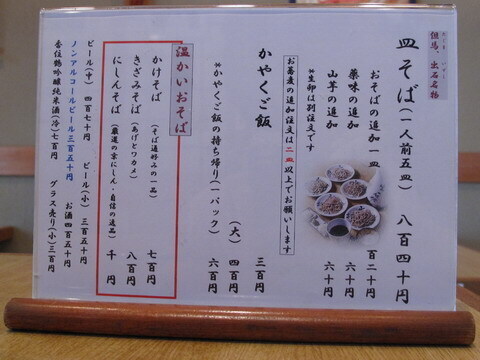 但馬、出石名物
皿そば（一人前五皿） 八百四十円
おそばの追加一皿 百二十円
薬味の追加 六十円
山芋の追加 六十円
*生卵は別注文です
お蕎麦の追加注文は二皿以上でお願いします
かやくご飯 三百円
（大） 四百円
*かやくご飯の持ち帰り（一パック） 六百円
温かいおそば
かけそば （そば通好みの一品） 七百円
きざみそば （あげとワカメ） 八百円
にしんそば （厳選の京にしん・自信の逸品） 千円
ビール（中） 四百七十円 ビール（小） 三百五十円
ノンアルコールビール三百五十円 お酒四百五十円
香住鶴吟醸純米酒（冷）七百円 グラス売り（小）三百円